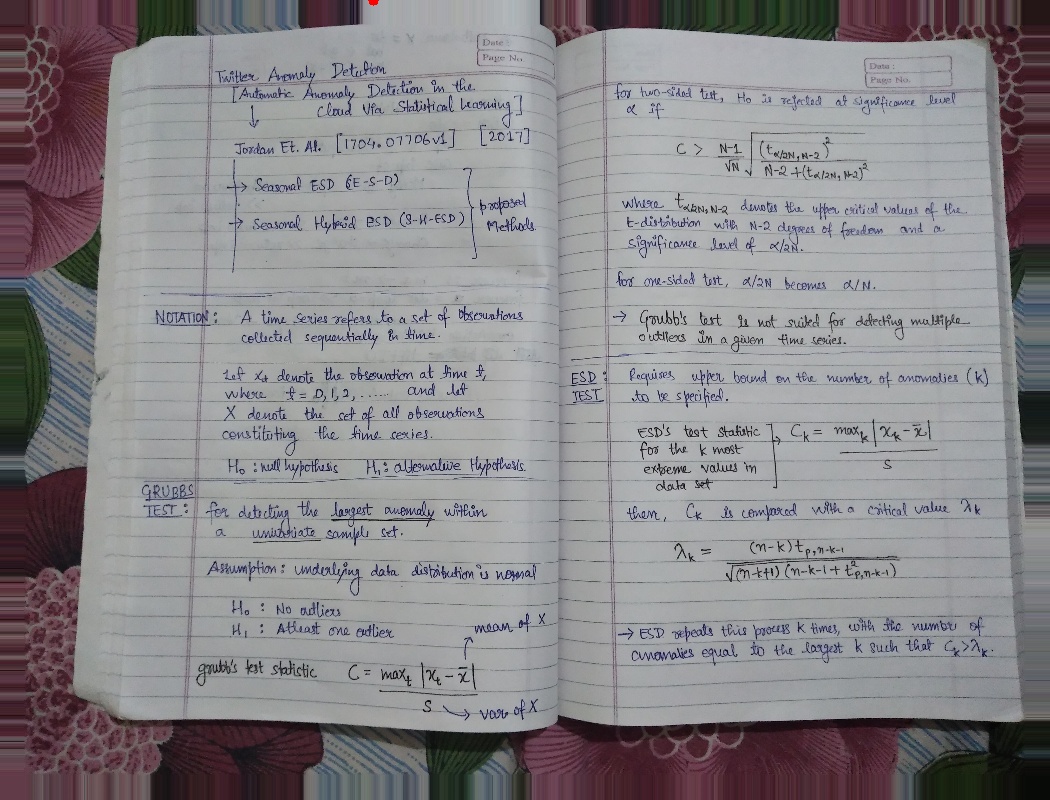 Date :
Page No.
Twitter Anomaly Detection
[Automatic Anomaly Detection in the
Cloud Via Statistical Learning]
Jordan Et. Al. [1704.07706v1] [2017]
→ Seasonal ESD (E-S-D)
→ Seasonal Hybrid ESD (S-H-ESD)
proposed
Methods.
NOTATION : A time series refers to a set of observations
collected sequentially in time.
Let xt denote the observation at time t,
where t = 0, 1, 2, ...... and let
X denote the set of all observations
constituting the time series.
H0 : null hypothesis H1 : alternative Hypothesis.
GRUBBS
TEST : for detecting the largest anomaly within
a univariate sample set.
Assumption : underlying data distribution is normal
H0 : No outliers
H1 : Atleast one outlier
mean of X
grubb's test statistic C = maxt |xt - x̄|
S → var of X
Date :
Page No.
for two-sided test, H0 is rejected at significance level
α if
C > N-1 / √N √ (tα/2N, N-2)² / N-2 + (tα/2N, N-2)²
where tα/2N, N-2 denotes the upper critical values of the
t-distribution with N-2 degrees of freedom and a
significance level of α/2N.
for one-sided test, α/2N becomes α/N.
→ Grubb's test is not suited for detecting multiple
outliers in a given time series.
ESD : Requires upper bound on the number of anomalies (k)
TEST to be specified.
ESD's test statistic
for the k most
extreme values in
data set
Ck = maxk |xk - x̄|
S
then, Ck is compared with a critical value λk
λk = (n-k) tp, n-k-1
√(n-k+1) (n-k-1 + t²p, n-k-1)
→ ESD repeats this process k times, with the number of
anomalies equal to the largest k such that Ck > λk.